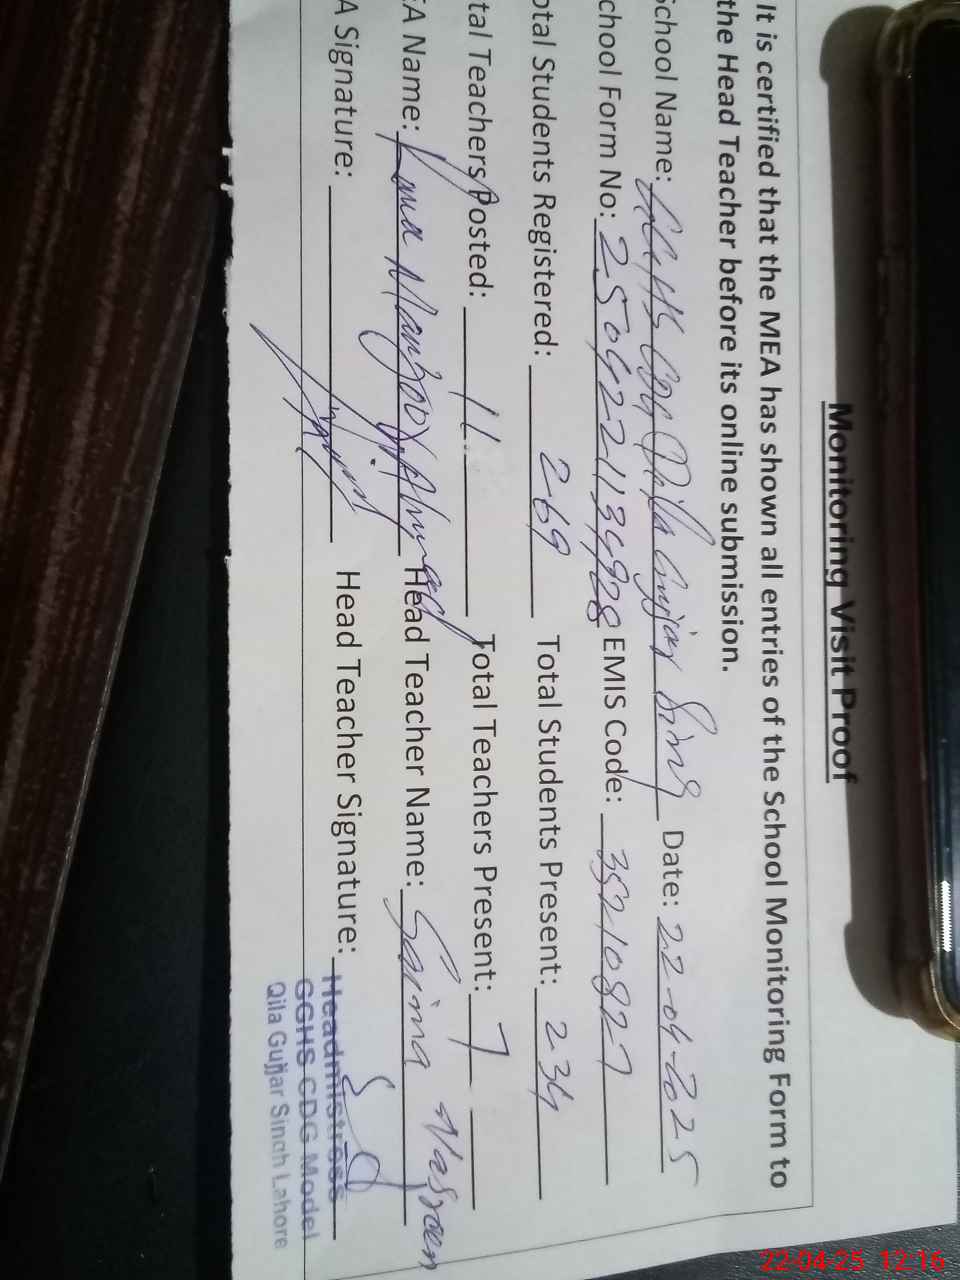 Monitoring Visit Proof
It is certified that the MEA has shown all entries of the School Monitoring Form to
the Head Teacher before its online submission.
School Name: GGHS CDG Qila Gujjar Sing Date: 22-04-2025
chool Form No: EMIS Code: 35210827
otal Students Registered: 269 Total Students Present: 234
tal Teachers Posted: 11 Total Teachers Present: 7
EA Name: Rana Manzoor Ahmad Head Teacher Name: Saima Nasreen
A Signature: Head Teacher Signature:
Headmistress
GGHS CDG Model
Qila Gujjar Singh Lahore
22-04-25 12:16